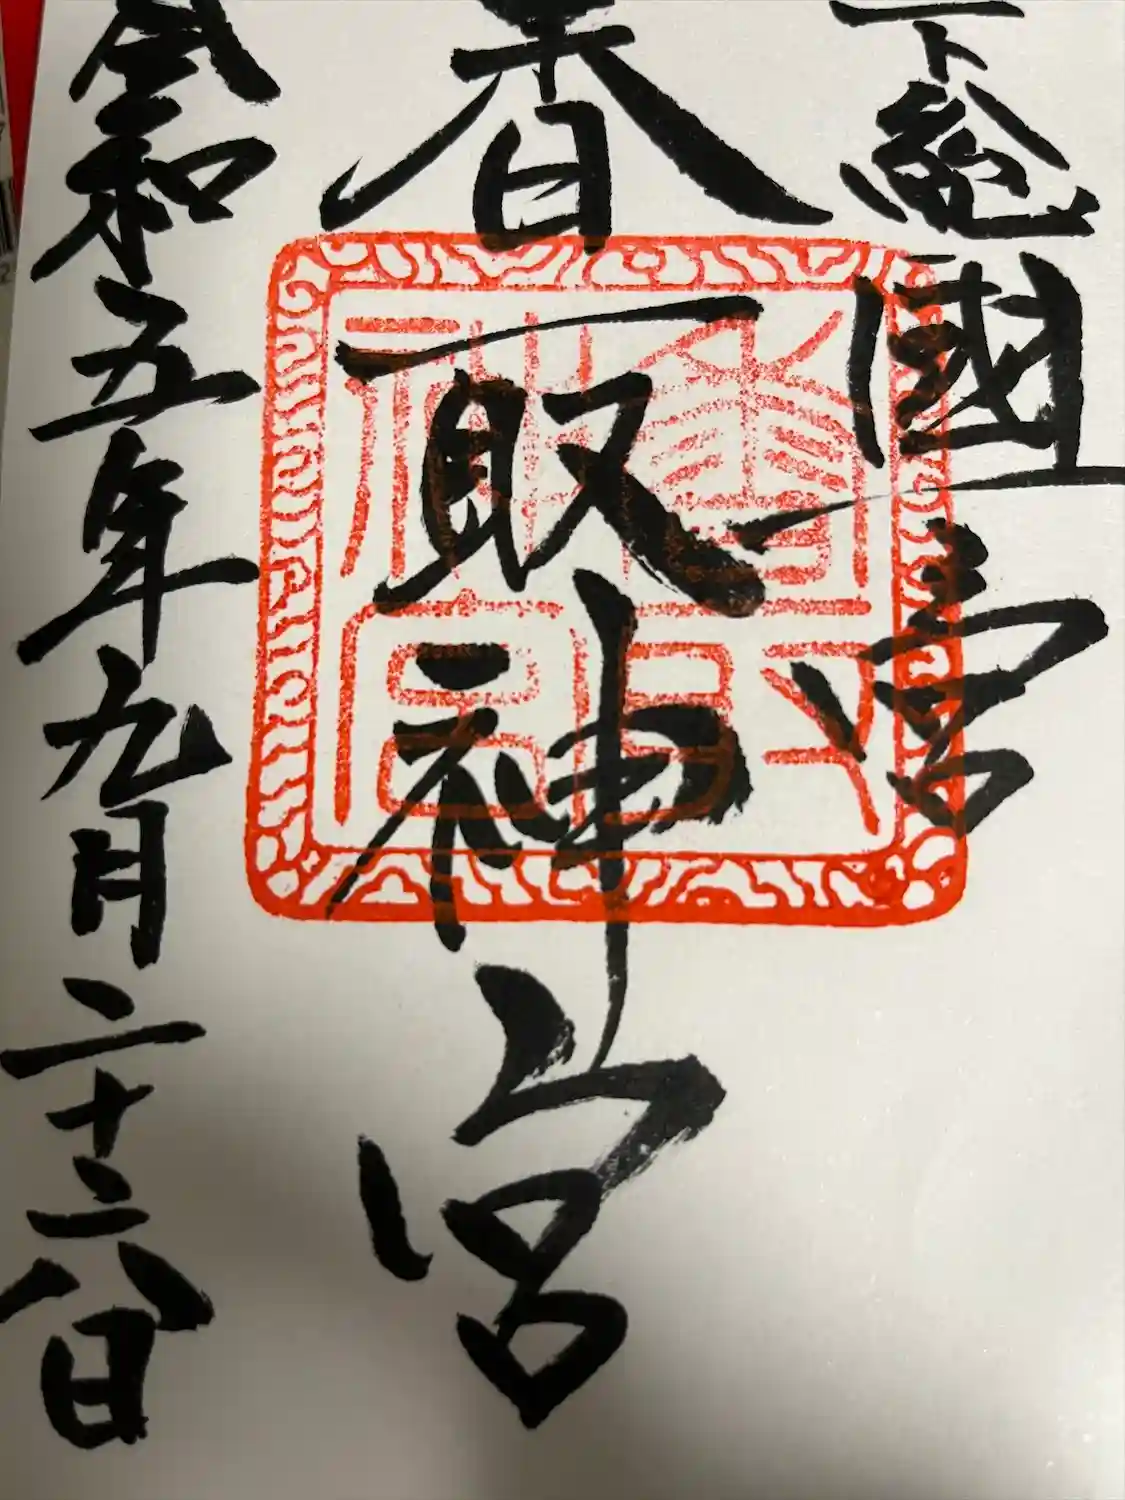 下総國一宮
香取神宮
香取神宮
令和五年九月二十六日